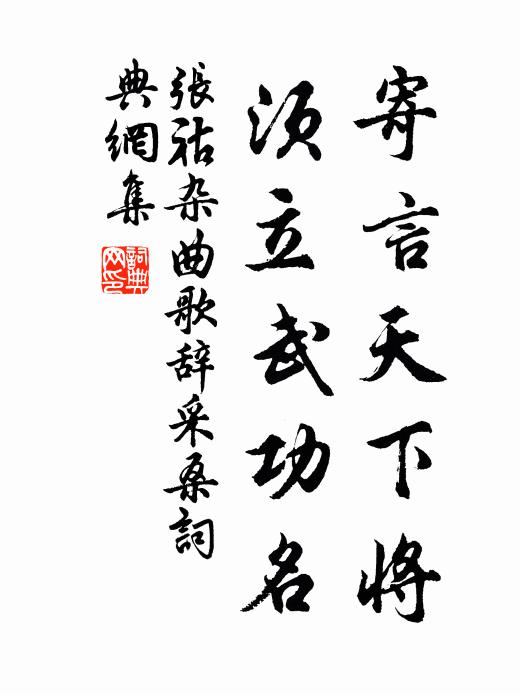 寄言天下將
須立武功名
張祜杂曲歌辞采桑詞
典網集
詞典
网印